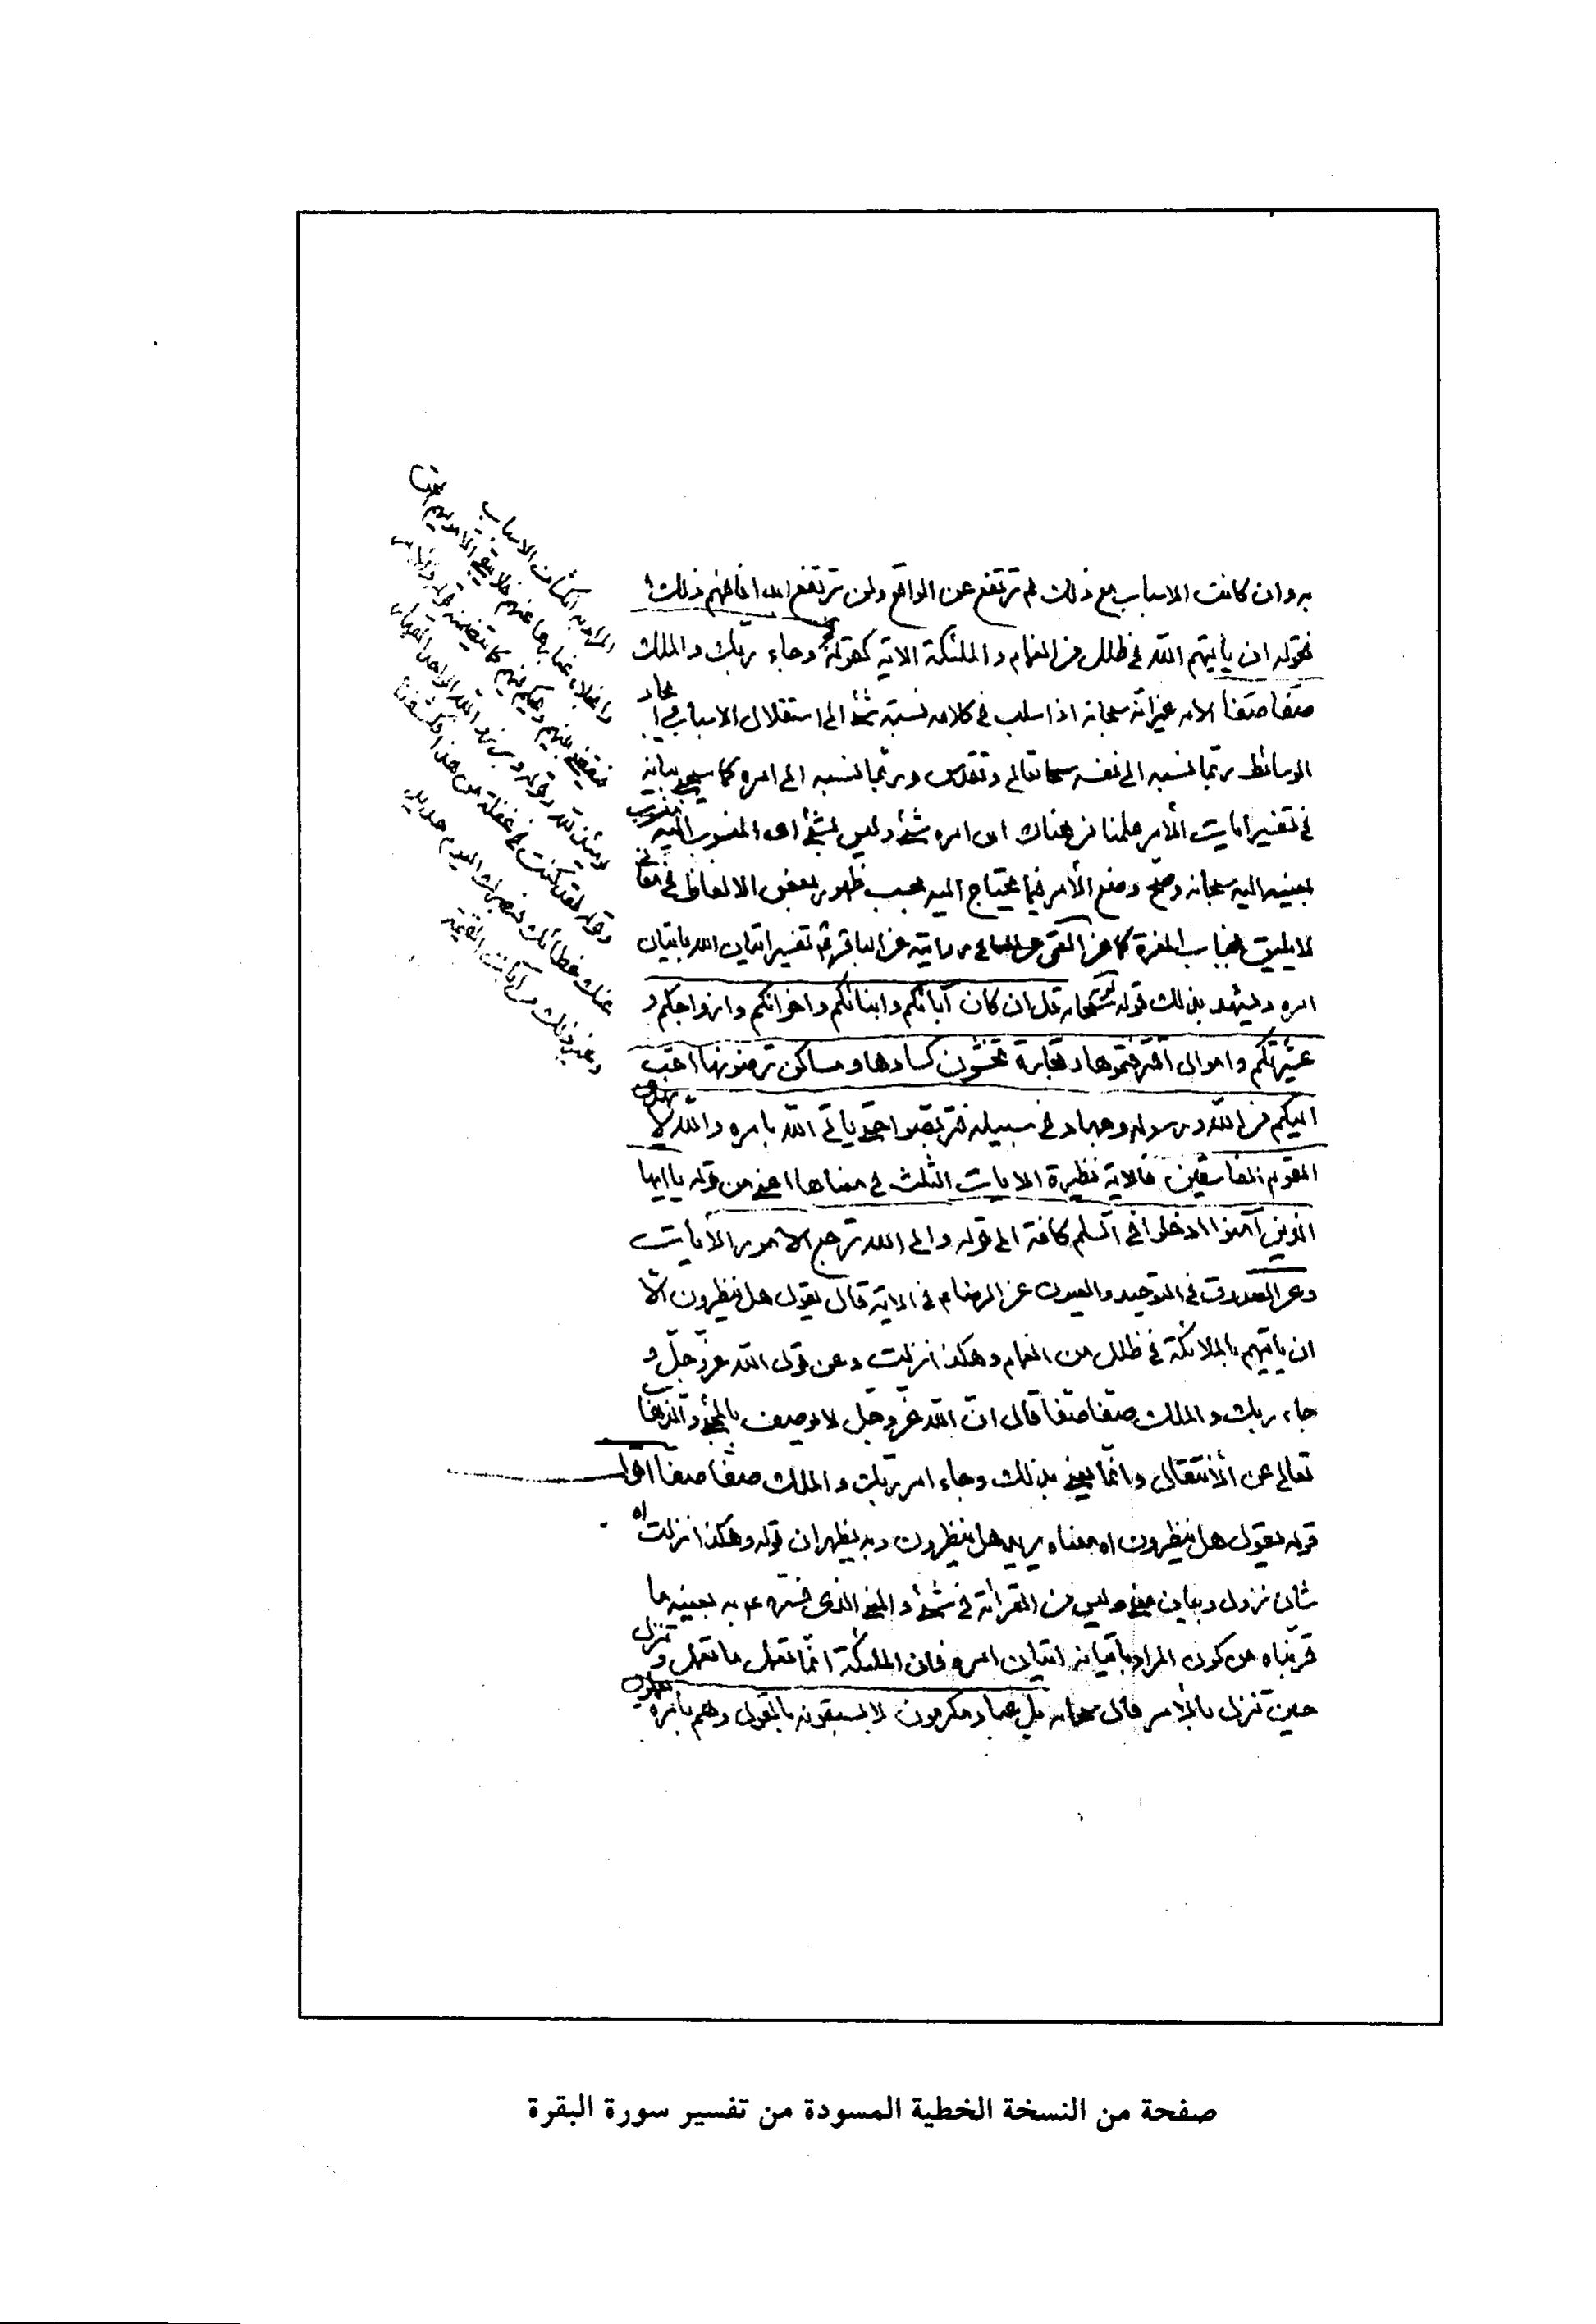 به وان كانت الاسباب مع ذلك لم ترتفع عن الواقع ولن ترتفع ابدا فافهم ذلك
فقوله ان يأتيهم الله في ظلل من الغمام والملئكة الاية كقوله وجاء ربك والملك
صفا صفا الاية غير انه سبحانه اذا سلب في كلامه نسبة شئ الى استقلال الاسباب
الوسائط ربما نسبه الى نفسه سبحانه تعالى وتقدس وربما نسبه الى امره كما سيجئ بيانه
في تفسير ايات الأمر علمنا من هناك ان امره شئ وليس بشئ اى المنسوب اليه منسوب
بعينه اليه سبحانه وصح وضع الأمر فيما يحتاج اليه بحسب ظهور بعض الالفاظ في معاني
لا يليق بجناب العزة كما عن القمى عن رواية عن الباقر تفسير اتيان الله باتيان
امره ويشهد بذلك قوله سبحانه قل ان كان آبائكم وابنائكم واخوانكم وازواجكم و
عشيرتكم واموال اقترفتموها وتجارة تخشون كسادها ومساكن ترضونها احب
اليكم من الله ورسوله وجهاد في سبيله فتربصوا حتى يأتي الله بامره والله لا يهدى
القوم الفاسقين فالاية نظيرة الايات الثلث في معناها اعني من قوله يا ايها
الذين آمنوا ادخلوا في السلم كافة الى قوله والى الله ترجع الامور الآيات
وعن الصدوق في التوحيد والعيون عن الرضا م في الاية قال يقول هل ينظرون الا
ان يأتيهم بالملائكة في ظلل من الغمام وهكذا نزلت وعن قول الله عز وجل و
جاء ربك والملك صفا صفا قال ان الله عز وجل لا يوصف بالمجئ والذهاب
تعالى عن الأنتقال وانما يعني بذلك وجاء امر ربك والملك صفا صفا
قوله يقول هل ينظرون اه معناه يريد هل ينظرون وبه يظهر ان قوله وهكذا نزلت اه
شان نزول وبيان معنى وليس من القرائة في شئ والمعنى الذى فسره ع به بعينه ما
قربناه من كون المراد باتيانه اتيان امره فان الملئكة انما تعمل ما تعمل و تنزل
حين تنزل بالأمر قال سبحانه بل عباد مكرمون لا يسبقونه بالقول وهم بامره يعملون
المراد به انكشاف الاسباب
في غفلة من هذا فكشفنا
عنك غطائك فبصرك اليوم حديد
وغير ذلك من آيات القيمة
صفحة من النسخة الخطية المسودة من تفسير سورة البقرة